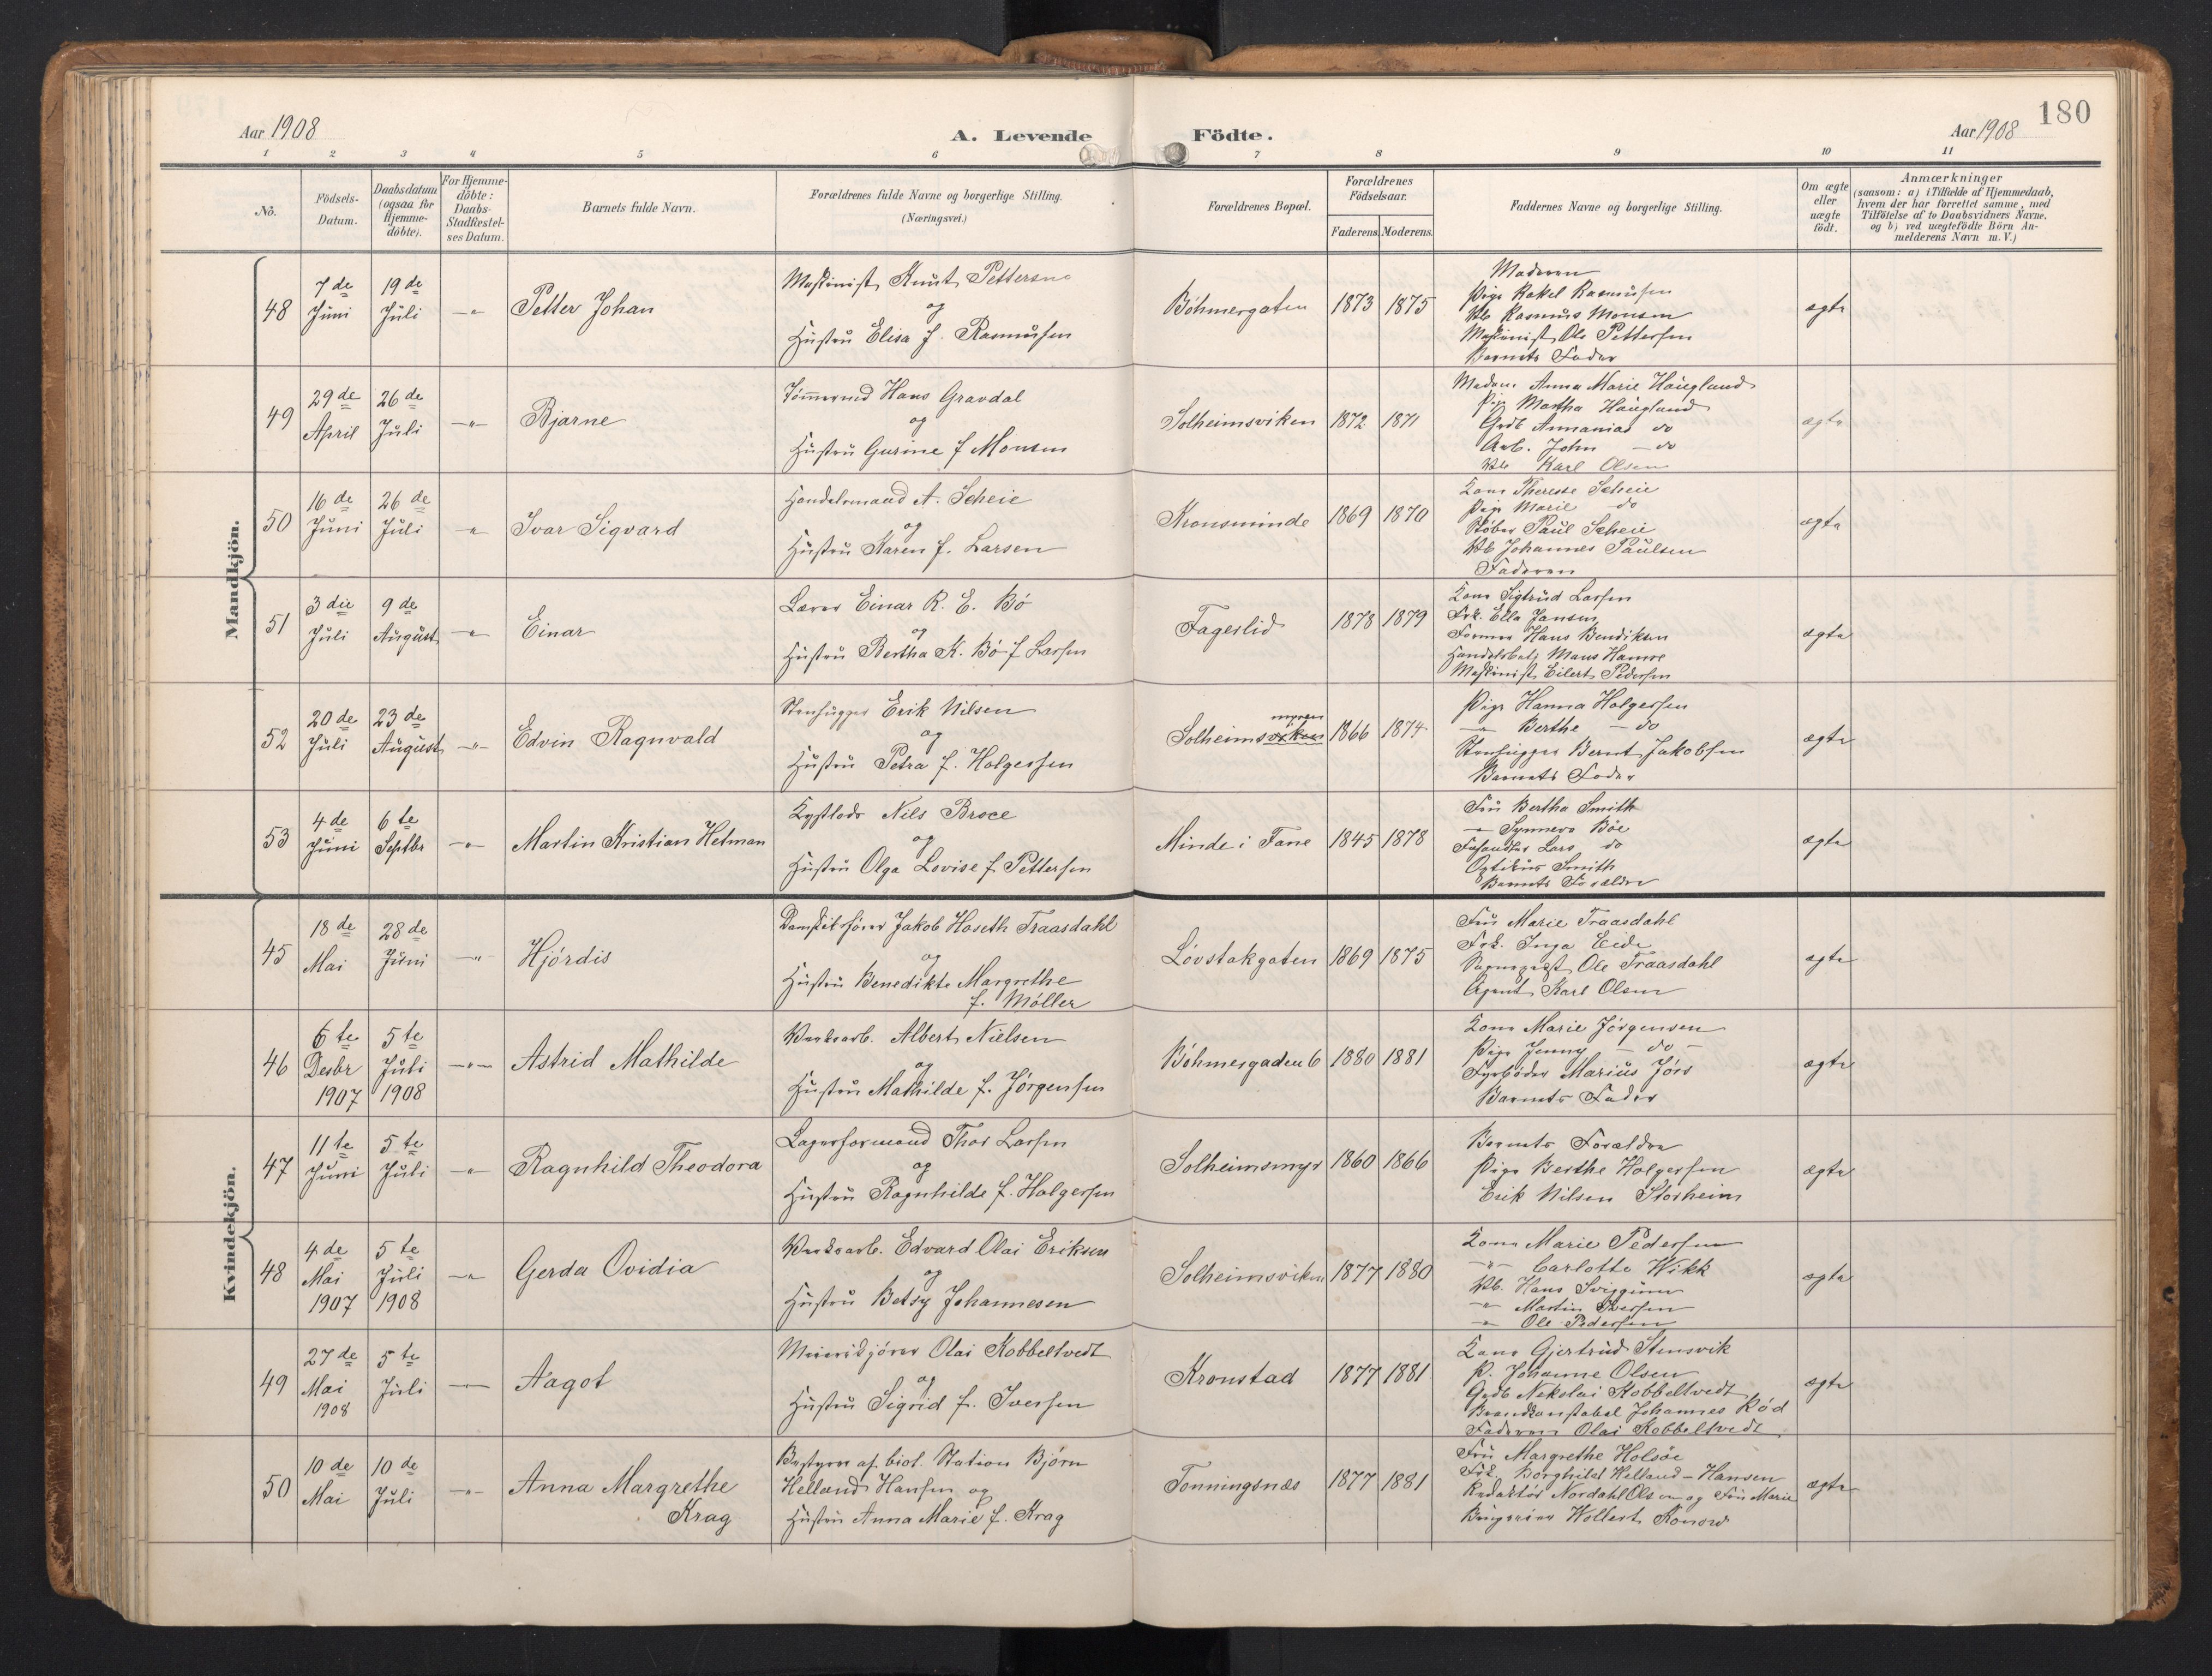 180
Aar 1908
A. Levende Födte.
Aar 1908
1 2 3 4 5 6 7 8 9 10 11
No.
Födsels-Datum.
Daabsdatum (ogsaa for Hjemme-döbte).
For Hjemme-döbte: Daabs-Stadfæstel-ses Datum.
Barnets fulde Navn.
Forældrenes fulde Navne og borgerlige Stilling. (Næringsvei.)
Forældrenes Bopæl.
Forældrenes Födselsaar.
Faderens. Moderens.
Faddernes Navne og borgerlige Stilling.
Om ægte eller uægte födt.
Anmærkninger
(saasom: a) i Tilfælde af Hjemmedaab,
hvem der har forrettet samme, med
Tilföielse af to Daabsvidners Navne.
og b) ved uægtefödte Börn An-
melderens Navn m. V.)
Mandkjön.
48
7de Juni
19de Juli
-"-
Petter Johan
Maskinist Knut Pettersne
og
Hustru Elisa f. Rasmussen
Böhmergaten
1873 1875
Madamen
Pige Rakel Rasmussen
Rasmus Monsen
Maskinist Ole Pettersen
Barnets Fader
ægte
49
29de April
26de Juli
-"-
Bjarne
Tömmermd Hans Gravdal
og
Hustru Gurine f Monsen
Solheimsviken
1872 1871
Madam Anna Marie Haugland
Pige Martha Haugland
Grdb Annanias do
Arb. John - do
Karl Olsen
ægte
50
16de Juni
26de Juli
"
Ivar Sigvard
Handelsmand A. Scheie
og
Hustru Karen f. Larsen
Kronsminde
1869 1870
Kone Therese Scheie
Pige Marie do
Støber Paul Scheie
Johannes Paulsen
Faderen
ægte
51
3die Juli
9de August
-"-
Einar
Lærer Einar R. E. Bö
og
Hustru Bertha K. Bö f Larsen
Fagerlid
1878 1879
Kone Sigtrud Larsen
Frk. Ella Jansen
Former Hans Bendiksen
Handelsbetj Mans Hamre
Maskinist Eilert Pedersen
ægte
52
20de Juli
23de August
-"-
Edvin Ragnvald
Stenhugger Erik Nilsen
og
Hustru Petra f. Holgersen
myren
Solheimsviken
1866 1874
Pige Hanna Holgersen
-"- Berthe - do
Stenhugger Bernt Jakobsen
Barnets Fader
ægte
53
4de Juni
6te Septbr
-"-
Martin Kristian Hetman
Kystlods Nils Broce
og
Hustru Olga Lovise f Pettersen
Minde i Fane
1845 1878
Fru Bertha Smith
-"- Synneva Böe
Lars do
Optikus Smith
Barnets Forældre
ægte
Kvindekjön.
45
18de Mai
28de Juni
-"-
Hjördis
Dampskibsfører Jakob Hoseth Traasdahl
og
Hustru Benedikte Margrethe
f. Möller
Lövstakgaten
1869 1875
Fru Marie Traasdahl
Frk. Inga Eide
Ole Traasdahl
Agent Karl Olsen
ægte
46
6te Desbr 1907
5te Juli 1908
-"-
Astrid Mathilde
Værksarb. Albert Nielsen
og
Hustru Mathilde f. Jörgensen
Böhmergaden 6
1880 1881
Kone Marie Jörgensen
Pige Jenny - do -
Fyrböder Marius Jörs
Barnets Fader
ægte
47
11te Juni
5te Juli
-"-
Ragnhild Theodora
Lagerformand Thor Larsen
og
Hustru Ragnhilde f. Holgersen
Solheimsmyr
1860 1866
Barnets Forældre
Pige Berthe Holgersen
Erik Nilsen Storheim
ægte
48
4de Mai 1907
5te Juli 1908
-"-
Gerda Ovidia
Værksarb. Edvard Olai Eriksen
og
Hustru Betsy Johannesen
Solheimsviken
1877 1880
Kone Marie Pedersen
-"- Carlotte Wikk
Hans
-"- Martin Iversen
-"- Ole Pedersen
ægte
49
27de Mai 1908
5te Juli
-
Aagot
Meierikjörer Olai Kobbeltvedt
og
Hustru Sigrid f. Iversen
Kronstad
1877 1881
Kone Gjertrud Stensvik
P. Johanne Olsen
Grdb Nekolai Kobbeltvedt
Brandkonstabel Johannes Röd
Faderen Olai Kobbeltvedt.
ægte
50
10de Mai
10de Juli
-"-
Anna Margrethe
Krag
Bestyrer af biol. Station Björn
Helland Hansen og
Hustru Anna Marie f. Krag
Tonningsnæs
1877 1881
Fru Margrethe Holsöe
Frk. Borghild Helland-Hansen
Redaktör Nordahl Olsen og Fru Marie
Wollert Konow
ægte